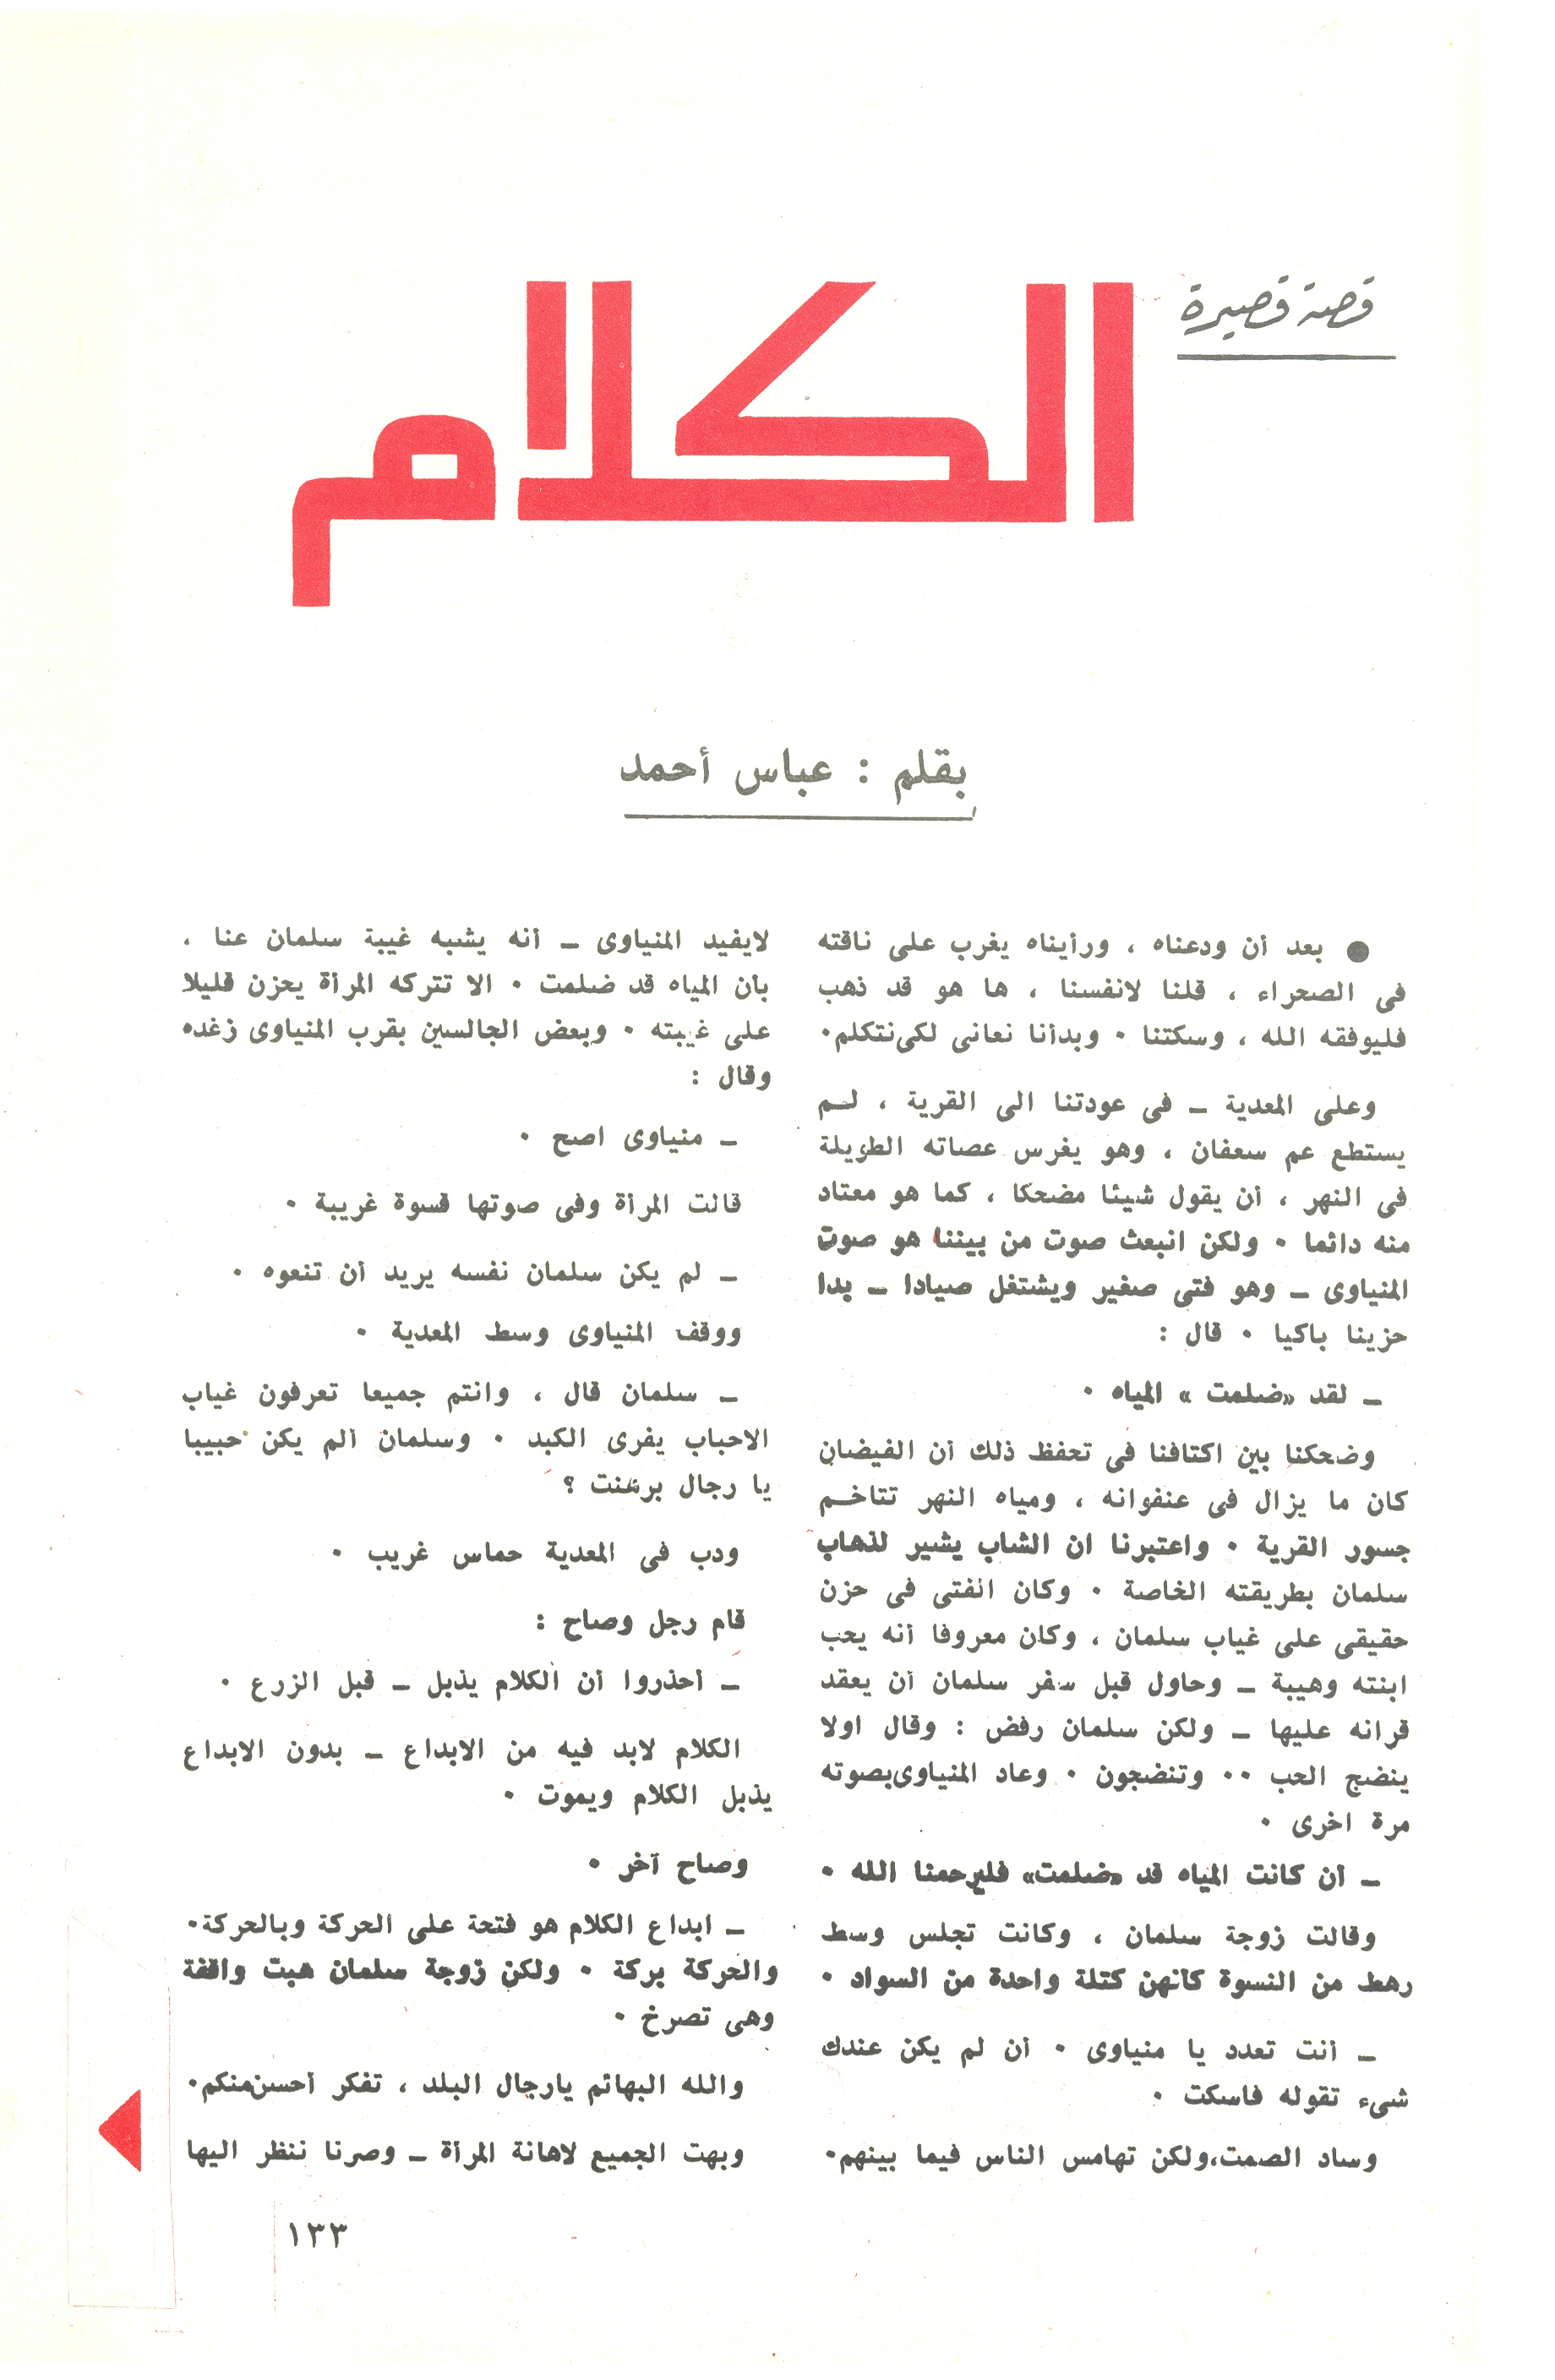 قصة قصيرة
الكلام
بقلم : عباس أحمد
● بعد أن ودعناه ، ورأيناه يغرب على ناقته
فى الصحراء ، قلنا لانفسنا ، ها هو قد ذهب
فليوفقه الله ، وسكتنا ٠ وبدأنا نعانى لكى نتكلم٠
وعلى المعدية ـ فى عودتنا الى القرية ، لـم
يستطع عم سعفان ، وهو يغرس عصاته الطويلة
فى النهر ، أن يقول شيئا مضحكا ، كما هو معتاد
منه دائما ٠ ولكن انبعث صوت من بيننا هو صوت
المنياوى ـ وهو فتى صغير ويشتغل صيادا ـ بدا
حزينا باكيا ٠ قال :
ـ لقد «ضلمت » المياه ٠
وضحكنا بين اكتافنا فى تحفظ ذلك أن الفيضان
كان ما يزال فى عنفوانه ، ومياه النهر تتاخـم
جسور القرية ٠ واعتبرنا ان الشاب يشير لذهاب
سلمان بطريقته الخاصة ٠ وكان الفتى فى حزن
حقيقى على غياب سلمان ، وكان معروفا أنه يحب
ابنته وهيبة ـ وحاول قبل سفر سلمان أن يعقد
قرانه عليها ـ ولكن سلمان رفض : وقال اولا
ينضج الحب ٠٠ وتنضجون ٠ وعاد المنياوى بصوته
مرة اخرى ٠
ـ أن كانت المياه قد «ضلمت» فليرحمنا الله ٠
وقالت زوجة سلمان ، وكانت تجلس وسط
رهط من النسوة كأنهن كتلة واحدة من السواد ٠
ـ أنت تعدد يا منياوى ٠ أن لم يكن عندك
شىء تقوله فاسكت ٠
وساد الصمت،ولكن تهامس الناس فيما بينهم٠
لايفيد المنياوى ـ أنه يشبه غيبة سلمان عنا ،
بأن المياه قد ضلمت ٠ الا تتركه المرأة يحزن قليلا
على غيبته ٠ وبعض الجالسين بقرب المنياوى زغده
وقال :
ـ منياوى اصح ٠
قالت المرأة وفى صوتها قسوة غريبة ٠
ـ لم يكن سلمان نفسه يريد أن تنعوه ٠
ووقف المنياوى وسط المعدية ٠
ـ سلمان قال ، وانتم جميعا تعرفون غياب
الاحباب يفرى الكبد ٠ وسلمان ألم يكن حبيبا
يا رجال برشنت ؟
ودب فى المعدية حماس غريب ٠
قام رجل وصاح :
ـ أحذروا أن الكلام يذبل ـ قبل الزرع ٠
الكلام لابد فيه من الابداع ـ بدون الابداع
يذبل الكلام ويموت ٠
وصاح آخر ٠
ـ ابداع الكلام هو فتحة على الحركة وبالحركة٠
والحركة بركة ٠ ولكن زوجة سلمان هبت واقفة
وهى تصرخ ٠
والله البهائم يارجال البلد ، تفكر أحسن منكم٠
وبهت الجميع لاهانة المرأة ـ وصرنا ننظر اليها
١٣٣